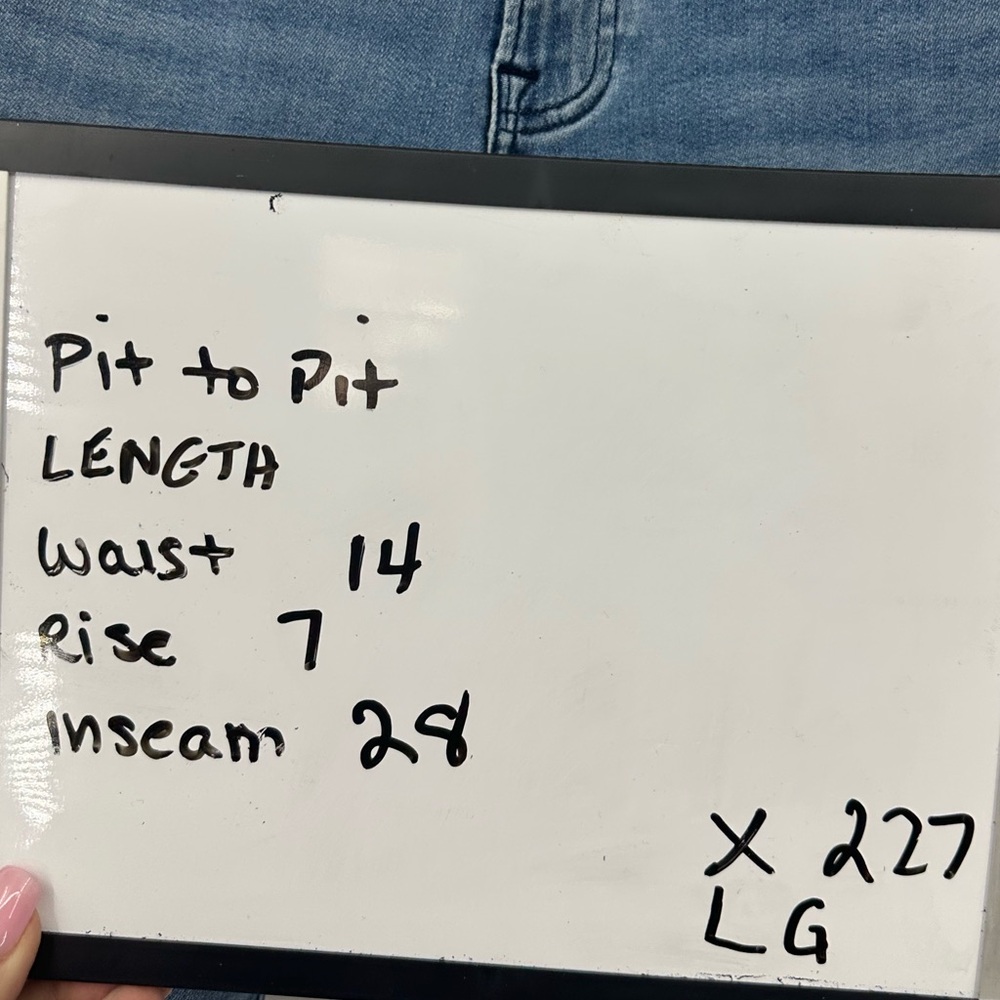 Pit to Pit
LENGTH
Waist 14
Rise 7
Inseam 28
X 227
LG